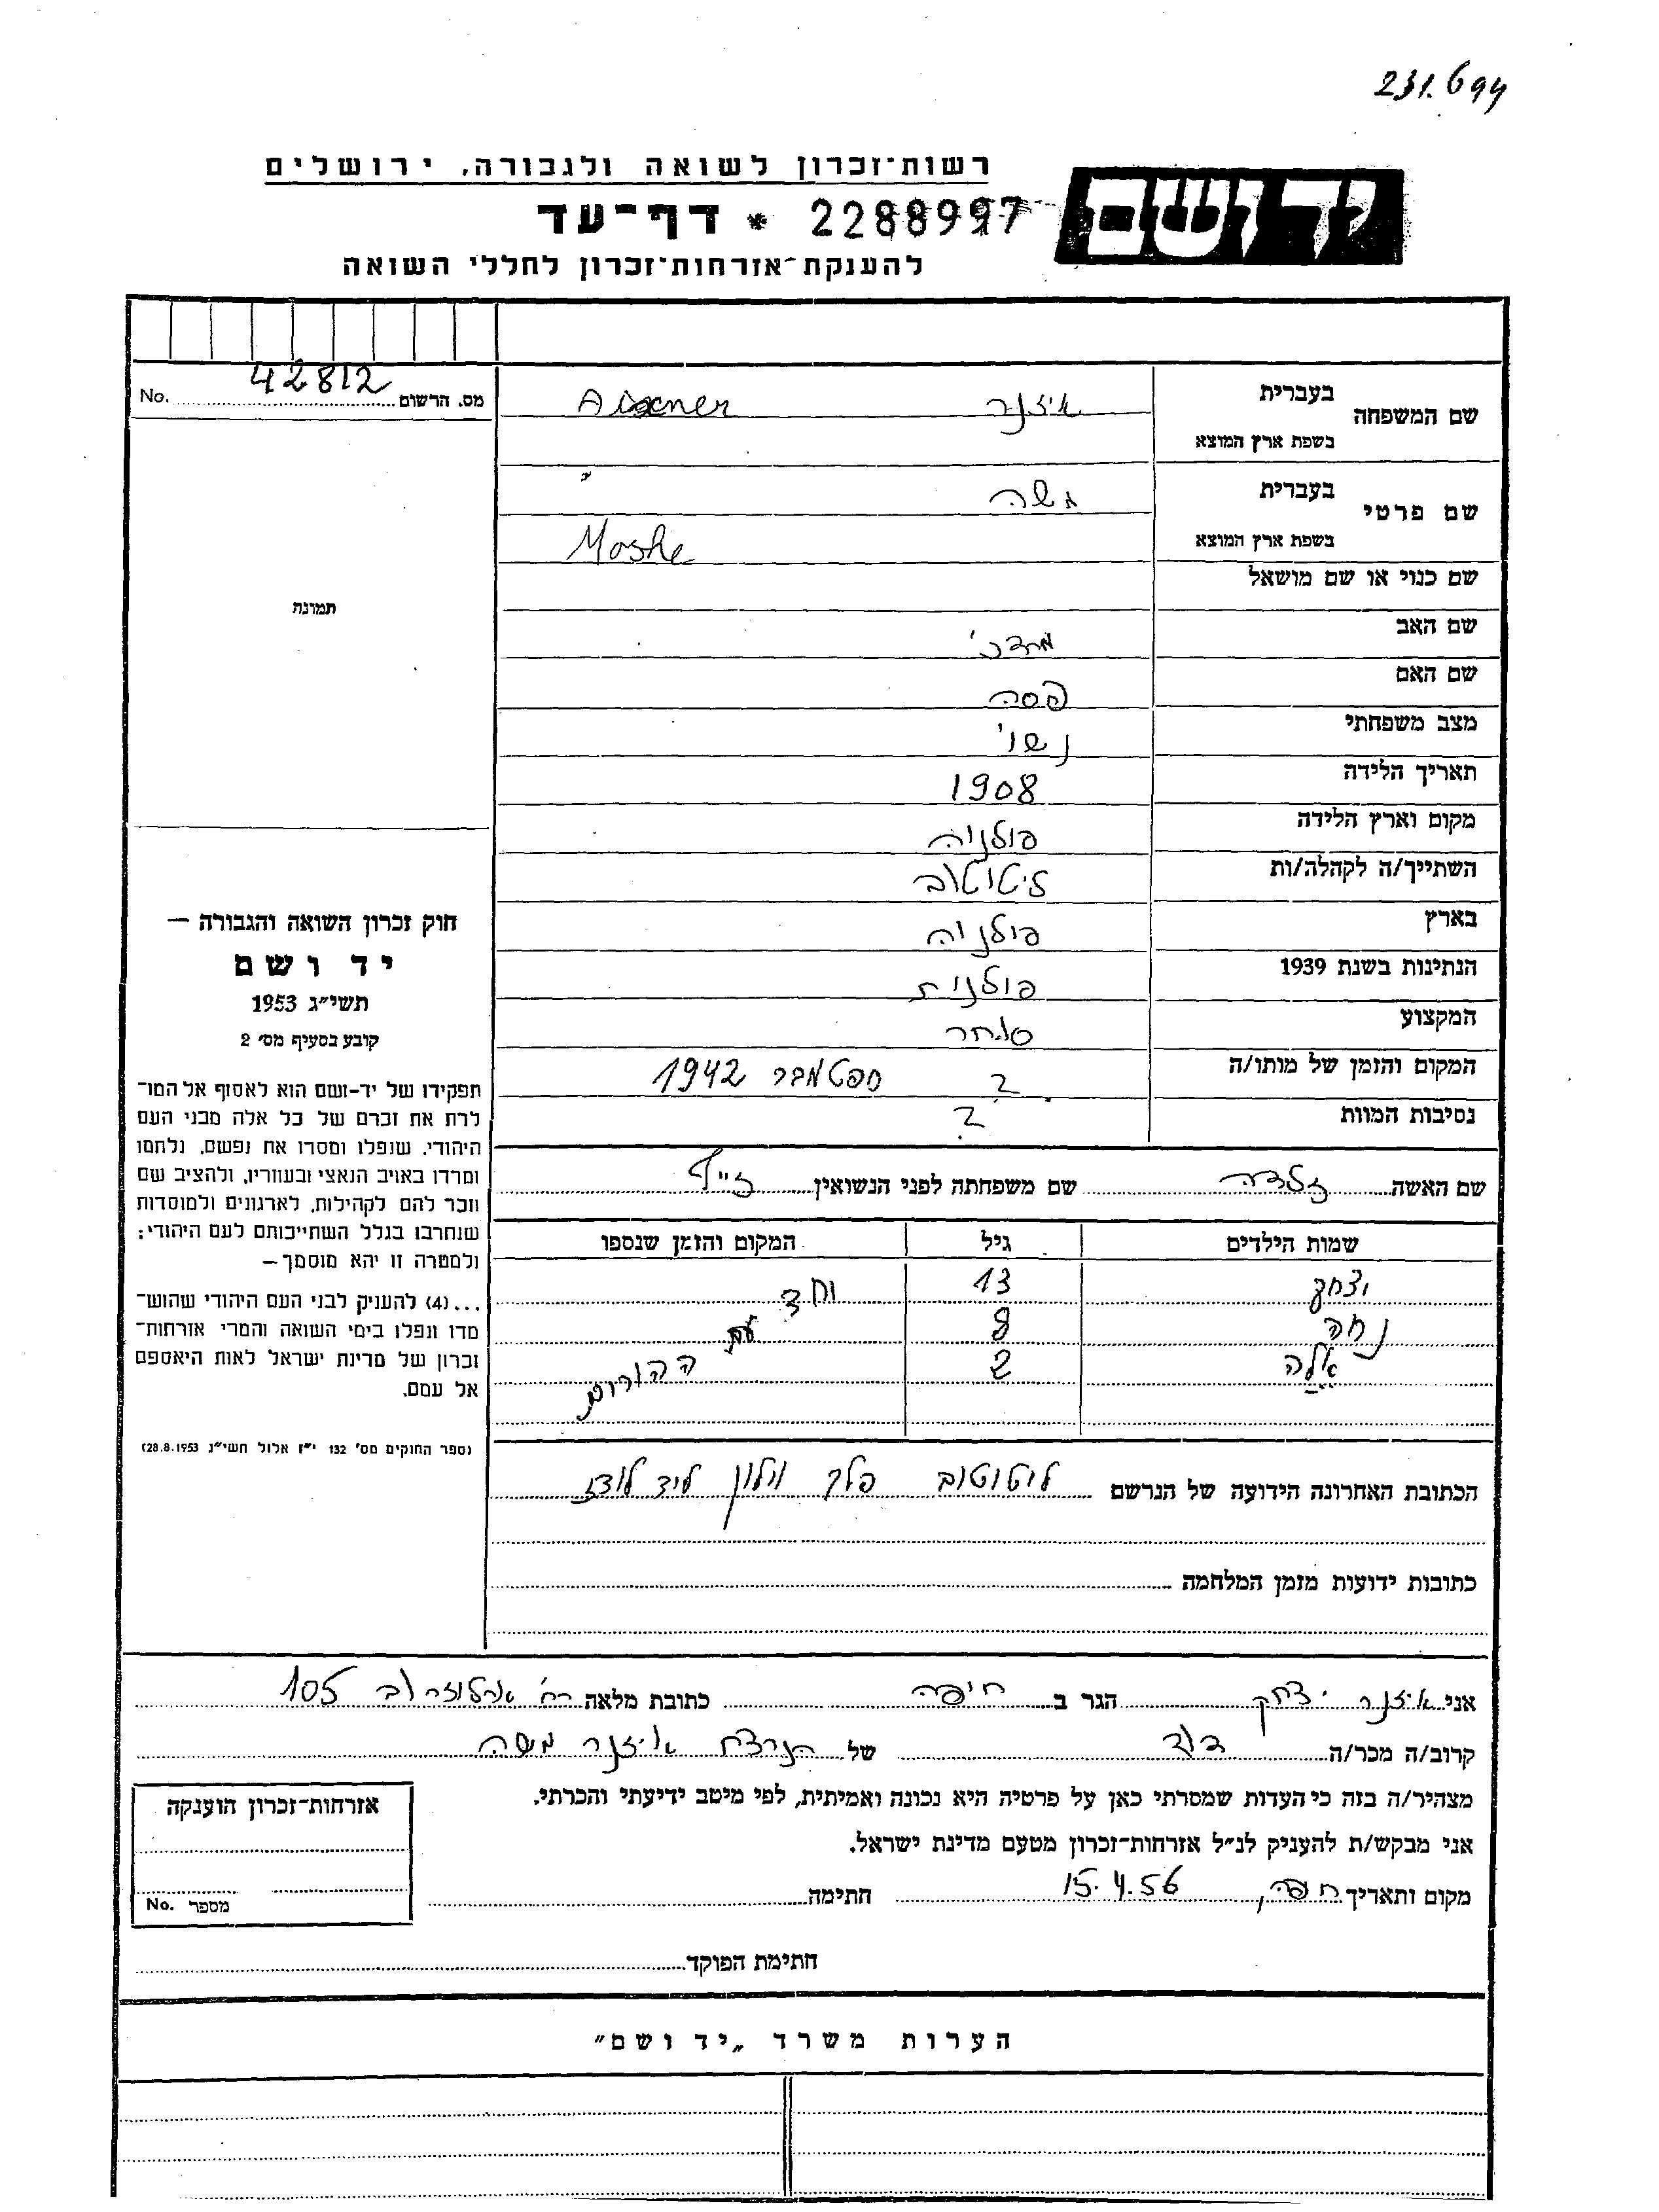 231.694
רשות־זכרון לשואה ולגבורה, ירושלים
יד ושם
2288997 * דף־עד
להענקת־אזרחות־זכרון לחללי השואה
מס. הרשום 42812 No.
שם המשפחה
בעברית איזנר
בשפת ארץ המוצא
שם פרטי
בעברית משה
בשפת ארץ המוצא Moshe
שם כנוי או שם מושאל
שם האב מרדכי
שם האם פסה
מצב משפחתי נשוי
תאריך הלידה 1908
מקום וארץ הלידה פולניה
השתייך/ה לקהלה/ות
בארץ פולניה
הנתינות בשנת 1939 פולנית
המקצוע סוחר
המקום והזמן של מותו/ה ? ספטמבר 1942
נסיבות המוות ?
שם האשה זלדה שם משפחתה לפני הנשואין
שמות הילדים גיל המקום והזמן שנספו
יצחק 13 יחד
נחה 8 עם
אלה 2 ההורים
הכתובת האחרונה הידועה של הנרשם פלך ליד לודז
כתובות ידועות מזמן המלחמה
תמונה
חוק זכרון השואה והגבורה —
יד ושם
תשי״ג 1953
קובע בסעיף מס׳ 2
תפקידו של יד-ושם הוא לאסוף אל המו־
לדת את זכרם של כל אלה מבני העם
היהודי, שנפלו ומסרו את נפשם, נלחמו
ומרדו באויב הנאצי ובעוזריו, ולהציב שם
וזכר להם לקהילות, לארגונים ולמוסדות
שנחרבו בגלל השתייכותם לעם היהודי;
ולמטרה זו יהא מוסמך —
... (4) להעניק לבני העם היהודי שהוש־
מדו ונפלו בימי השואה והמרי אזרחות־
זכרון של מדינת ישראל לאות היאספם
אל עמם.
(ספר החוקים מס׳ 132 י״ז אלול תשי״ג 28.8.1953)
אני איזנר יצחק הגר ב חיפה כתובת מלאה רח׳ ארלוזרוב 105
קרוב/ה מכר/ה דוד של הנרצח איזנר משה
מצהיר/ה בזה כי העדות שמסרתי כאן על פרטיה היא נכונה ואמיתית, לפי מיטב ידיעתי והכרתי.
אני מבקש/ת להעניק לנ״ל אזרחות־זכרון מטעם מדינת ישראל.
מקום ותאריך חיפה, 15.4.56 חתימה
אזרחות־זכרון הוענקה
מספר No.
חתימת הפוקד
הערות משרד „יד ושם״